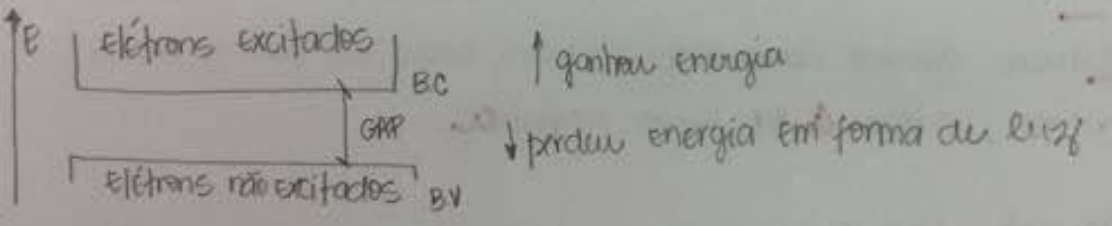 E
elétrons excitados
BC
GAP
elétrons não excitados
BV
↑ ganhou energia
↓ perdeu energia em forma de luz